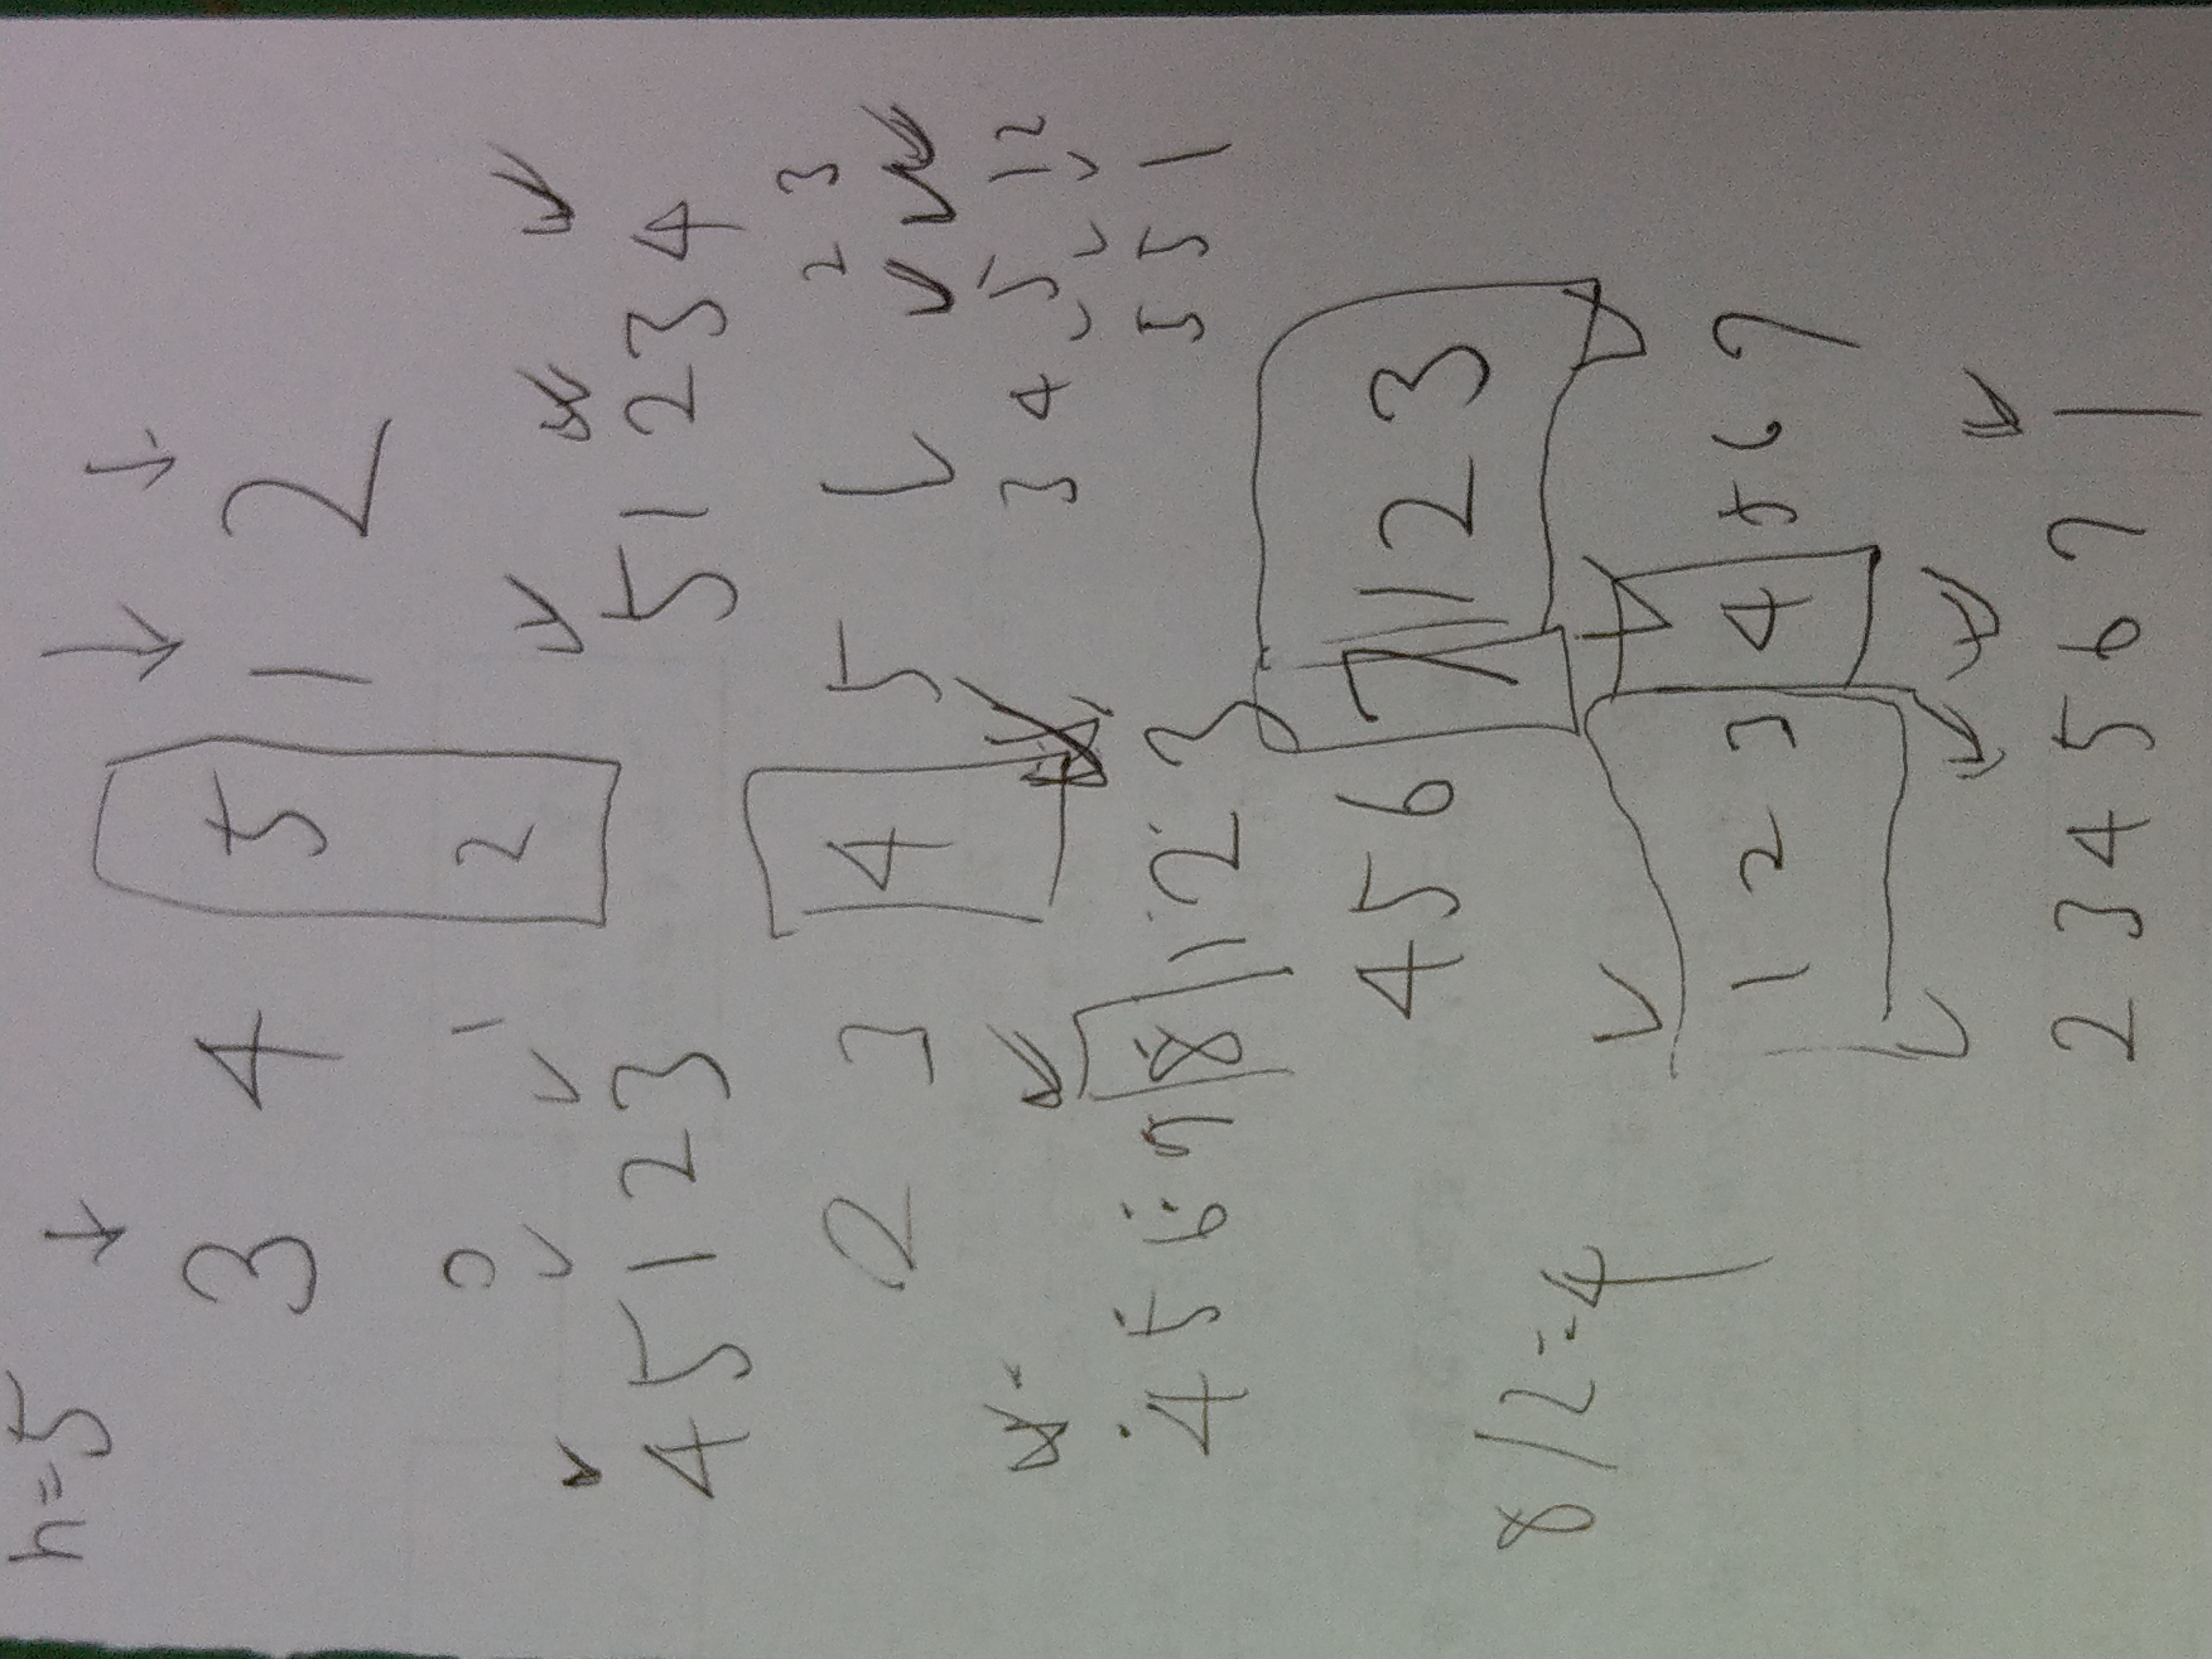 n=5
3 4 5 1 2
0 1 2
4 5 1 2 3
5 1 2 3 4
2 3 4 5 1
2 3
3 4 5 1 2
4 5 6 7 8 1 2 3
5 5 1
4 5 6 7 1 2 3
8/2=4
1 2 3 4 5 6 7
2 3 4 5 6 7 1